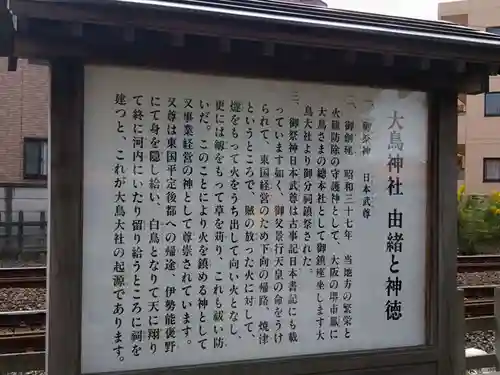 大鳥神社 由緒と神徳
一、御祭神 日本武尊
二、御創建 昭和三十七年 当地方の繁栄と
火難防除の守護神として、大阪の堺市鳳に
大鳥さまの総本社として御鎮座坐します大
鳥大社より御分祠鎮祭された。
三、御祭神日本武尊は古事記日本書記にも載
っています如く、御父景行天皇の命をうけ
られて、東国経営のため下向の帰路、焼津
というところで、賊の放った火に対して、
燧をもって火をうち出して向い火となし、
更には劔をもって草を苅り、これも祓い防
いだ。このことにより火を鎮める神として
又事業経営の神として尊崇されています。
又尊は東国平定後都への帰途、伊勢能褒野
にて身を隠し給い、白鳥となりて天に翔り
て終に河内にいたり留り給うところに祠を
建つと、これが大鳥大社の起源であります。